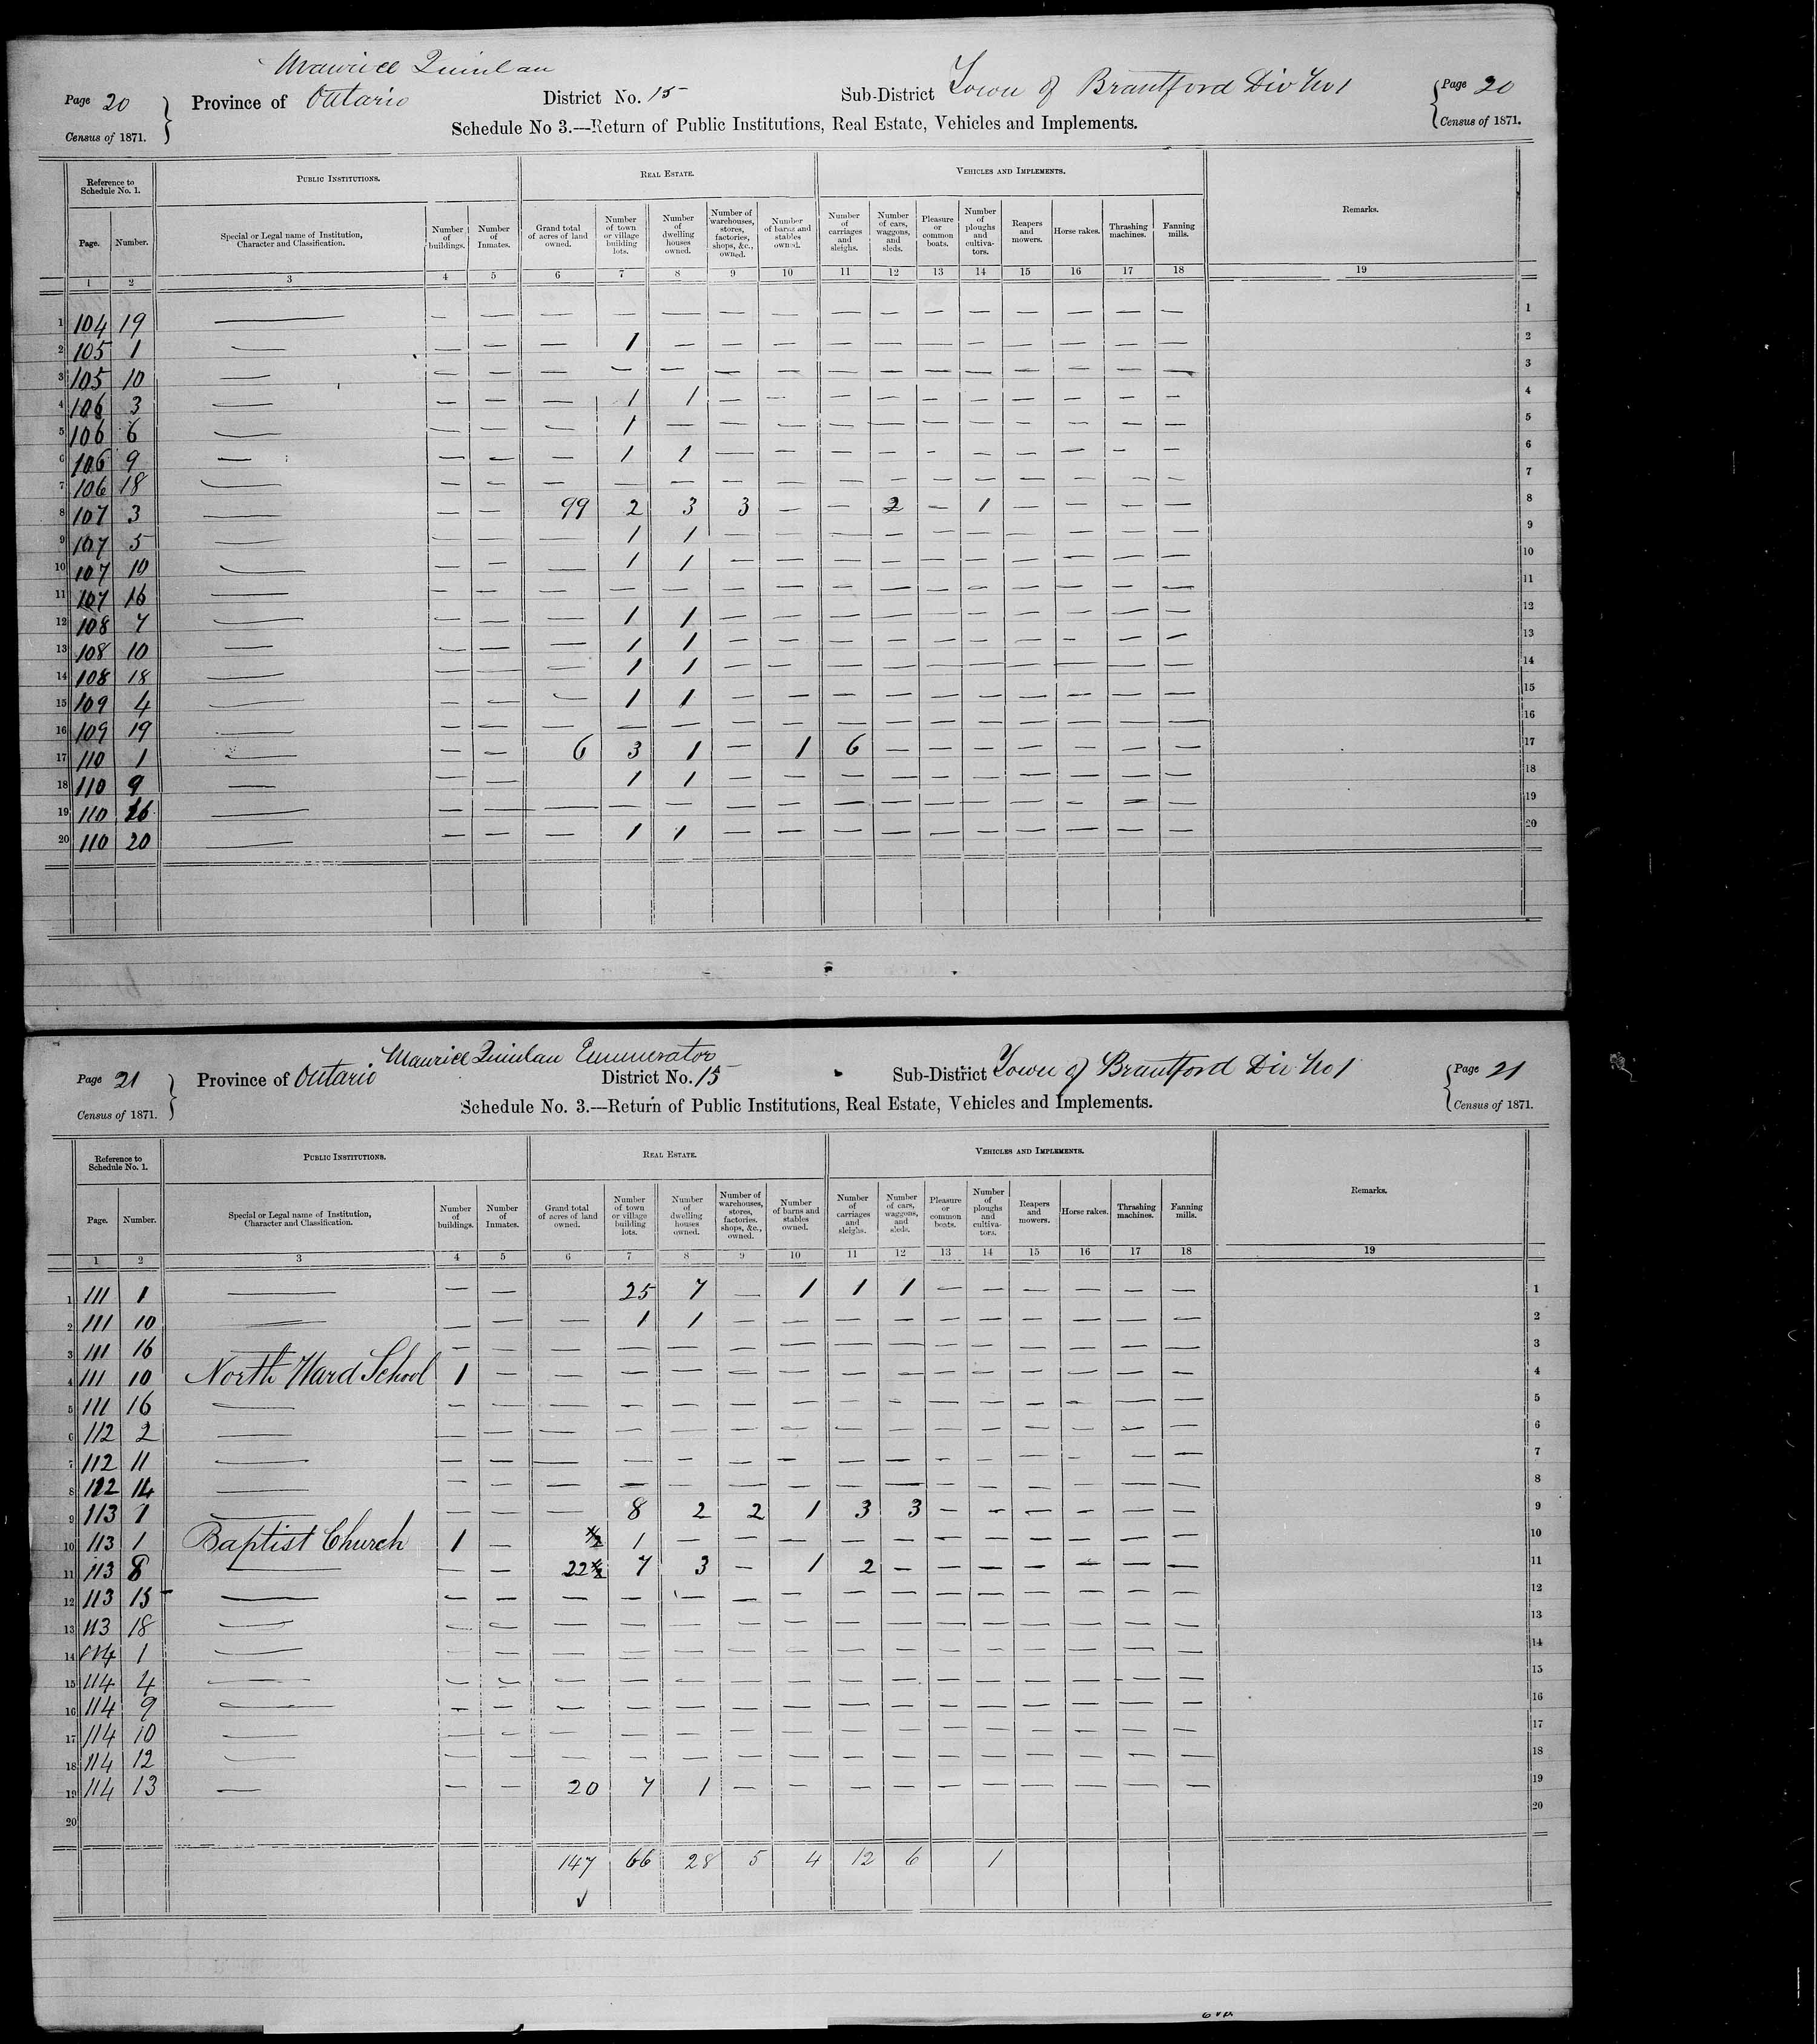 Maurice Quinlan
Page 20 Province of Ontario District No. 15 Sub-District Town of Brantford Div No 1 Page 20
Census of 1871. Census of 1871.
Schedule No 3.—Return of Public Institutions, Real Estate, Vehicles and Implements.
Reference to Schedule No. 1. PUBLIC INSTITUTIONS. REAL ESTATE. VEHICLES AND IMPLEMENTS. Remarks.
Page. Number. Special or Legal name of Institution, Character and Classification. Number of buildings. Number of Inmates. Grand total of acres of land owned. Number of town or village building lots. Number of dwelling houses owned. Number of warehouses, stores, factories, shops, &c., owned. Number of barns and stables owned. Number of carriages and sleighs. Number of cars, waggons, and sleds. Pleasure or common boats. Number of ploughs and cultiva-tors. Reapers and mowers. Horse rakes. Thrashing machines. Fanning mills.
1 2 3 4 5 6 7 8 9 10 11 12 13 14 15 16 17 18 19
1 104 19 — — — — — — — — — — — — — — — — 1
2 105 1 — — — — 1 — — — — — — — — — — — 2
3 105 10 — — — — — — — — — — — — — — — — 3
4 106 3 — — — — 1 1 — — — — — — — — — — 4
5 106 6 — — — — 1 — — — — — — — — — — — 5
6 106 9 — — — — 1 1 — — — — — — — — — — 6
7 106 18 — — — — — — — — — — — — — — — — 7
8 107 3 — — — 99 2 3 3 — — 2 — 1 — — — — 8
9 107 5 — — — — 1 1 — — — — — — — — — — 9
10 107 10 — — — — 1 1 — — — — — — — — — — 10
11 107 16 — — — — — — — — — — — — — — — — 11
12 108 7 — — — — 1 1 — — — — — — — — — — 12
13 108 10 — — — — 1 1 — — — — — — — — — — 13
14 108 18 — — — — 1 1 — — — — — — — — — — 14
15 109 4 — — — — 1 1 — — — — — — — — — — 15
16 109 19 — — — — — — — — — — — — — — — — 16
17 110 1 — — — 6 3 1 — 1 6 — — — — — — — 17
18 110 9 — — — 1 1 — — — — — — — — — — 18
19 110 16 — — — — — — — — — — — — — — — — 19
20 110 20 — — — — 1 1 — — — — — — — — — — 20
Maurice Quinlan Enumerator
Page 21 Province of Ontario District No. 15 Sub-District Town of Brantford Div No 1 Page 21
Census of 1871. Census of 1871.
Schedule No. 3.—Return of Public Institutions, Real Estate, Vehicles and Implements.
Reference to Schedule No. 1. PUBLIC INSTITUTIONS. REAL ESTATE. VEHICLES AND IMPLEMENTS. Remarks.
Page. Number. Special or Legal name of Institution, Character and Classification. Number of buildings. Number of Inmates. Grand total of acres of land owned. Number of town or village building lots. Number of dwelling houses owned. Number of warehouses, stores, factories. shops, &c., owned. Number of barns and stables owned. Number of carriages and sleighs. Number of cars, waggons, and sleds. Pleasure or common boats. Number of ploughs and cultiva-tors. Reapers and mowers. Horse rakes. Thrashing machines. Fanning mills.
1 2 3 4 5 6 7 8 9 10 11 12 13 14 15 16 17 18 19
1 111 1 — — — 25 7 — 1 1 1 — — — — — — 1
2 111 10 — — — — 1 1 — — — — — — — — — — 2
3 111 16 — — — — — — — — — — — — — — — — 3
4 111 10 North Ward School 1 — — — — — — — — — — — — — — 4
5 111 16 — — — — — — — — — — — — — — — — 5
6 112 2 — — — — — — — — — — — — — — — — 6
7 112 11 — — — — — — — — — — — — — — — — 7
8 112 14 — — — — — — — — — — — — — — — — 8
9 113 1 — — — — 8 2 2 1 3 3 — — — — — — 9
10 113 1 Baptist Church 1 — ½ 1 — — — — — — — — — — — 10
11 113 8 — — — 22½ 7 3 — 1 2 — — — — — — — 11
12 113 15 — — — — — — — — — — — — — — — — 12
13 113 18 — — — — — — — — — — — — — — — — 13
14 114 1 — — — — — — — — — — — — — — — — 14
15 114 4 — — — — — — — — — — — — — — — — 15
16 114 9 — — — — — — — — — — — — — — — — 16
17 114 10 — — — — — — — — — — — — — — — — 17
18 114 12 — — — — — — — — — — — — — — — — 18
19 114 13 — — — 20 7 1 — — — — — — — — — — 19
20 20
147 66 28 5 4 12 6 1
✓